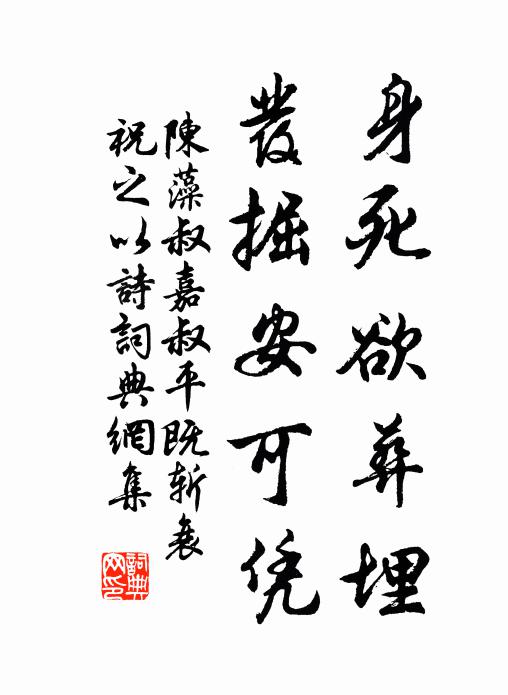 身死欲葬埋
發掘安可凭
陳藻叔嘉叔平既斬衰
祝之以詩詞典網集
詞典網印